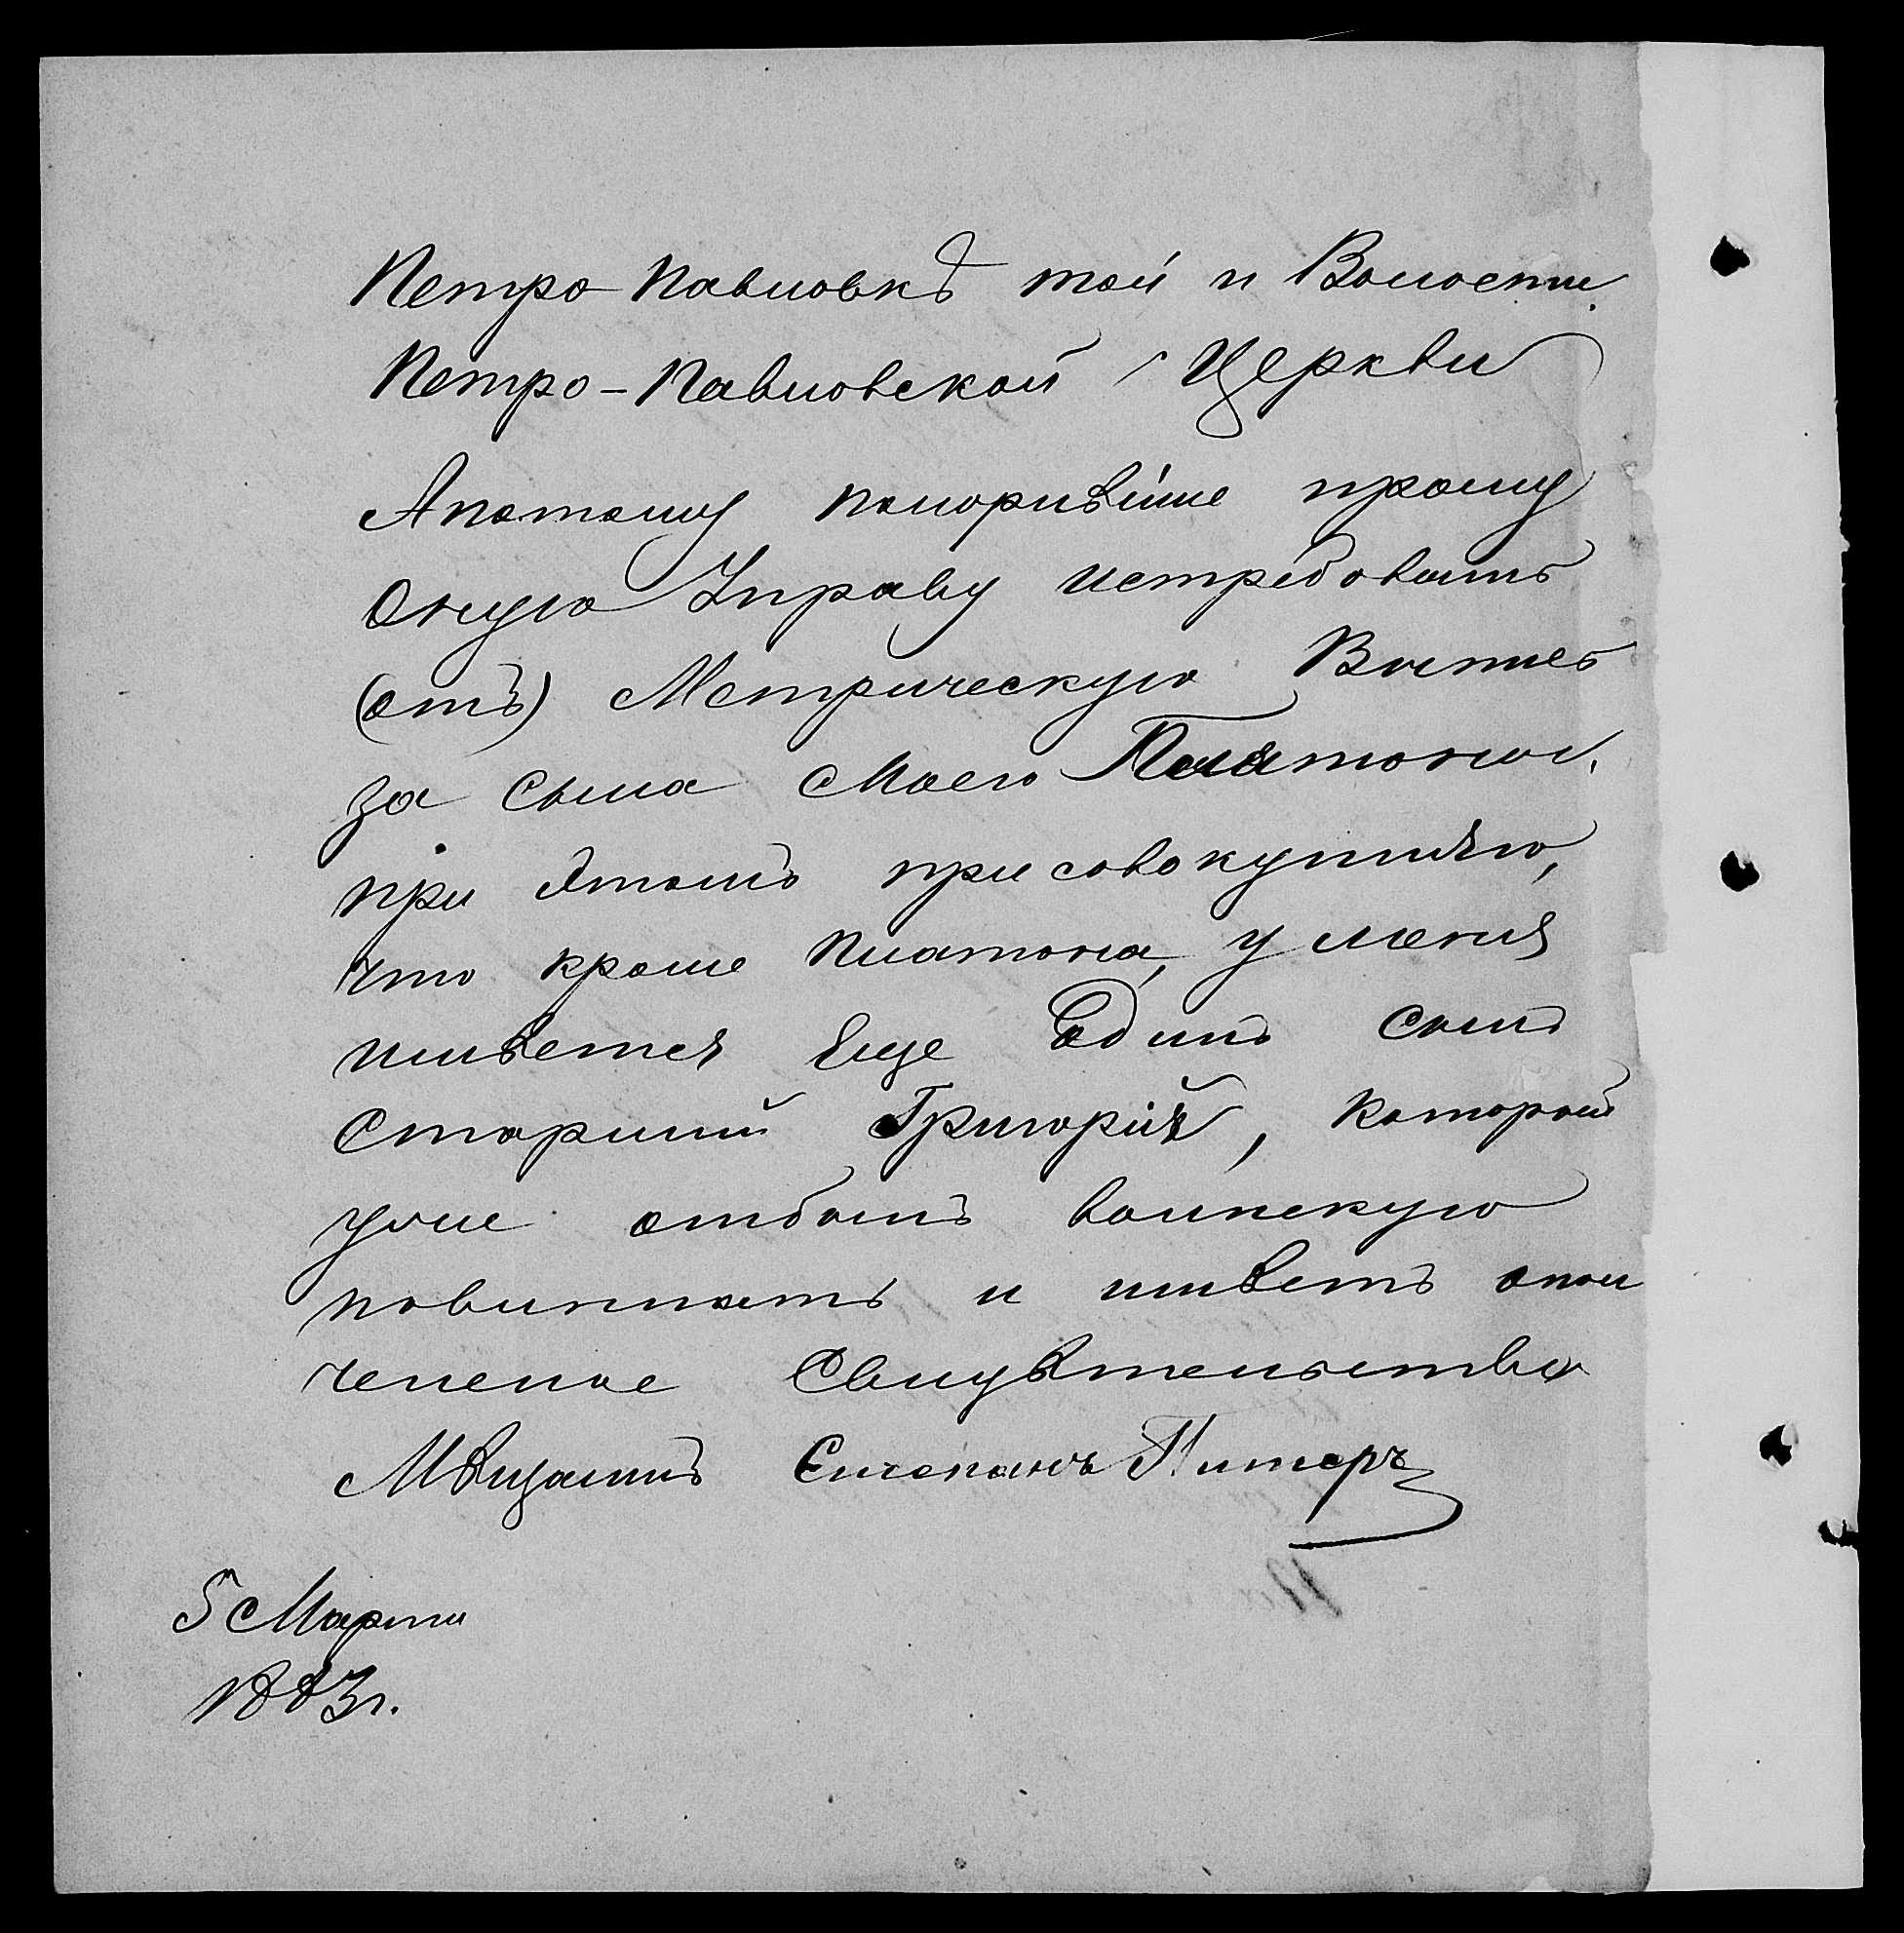 Петро-Павловкѣ той и Волости
Петро-Павловской Церкви
Апотому покорнѣйше прошу
Оную Управу истребовать
(отъ) Метрическую Выпись
за сына Моего Платона.
при этомъ присовокупляю,
что кроме Платона, у меня
имѣется Еще один сынъ
Старший Григорій, который
уже отбылъ воинскую
повинность и имѣетъ опол
ченское Свидѣтельство
Мѣщанинъ Степанъ Питеръ
5 Марта
1883 г.